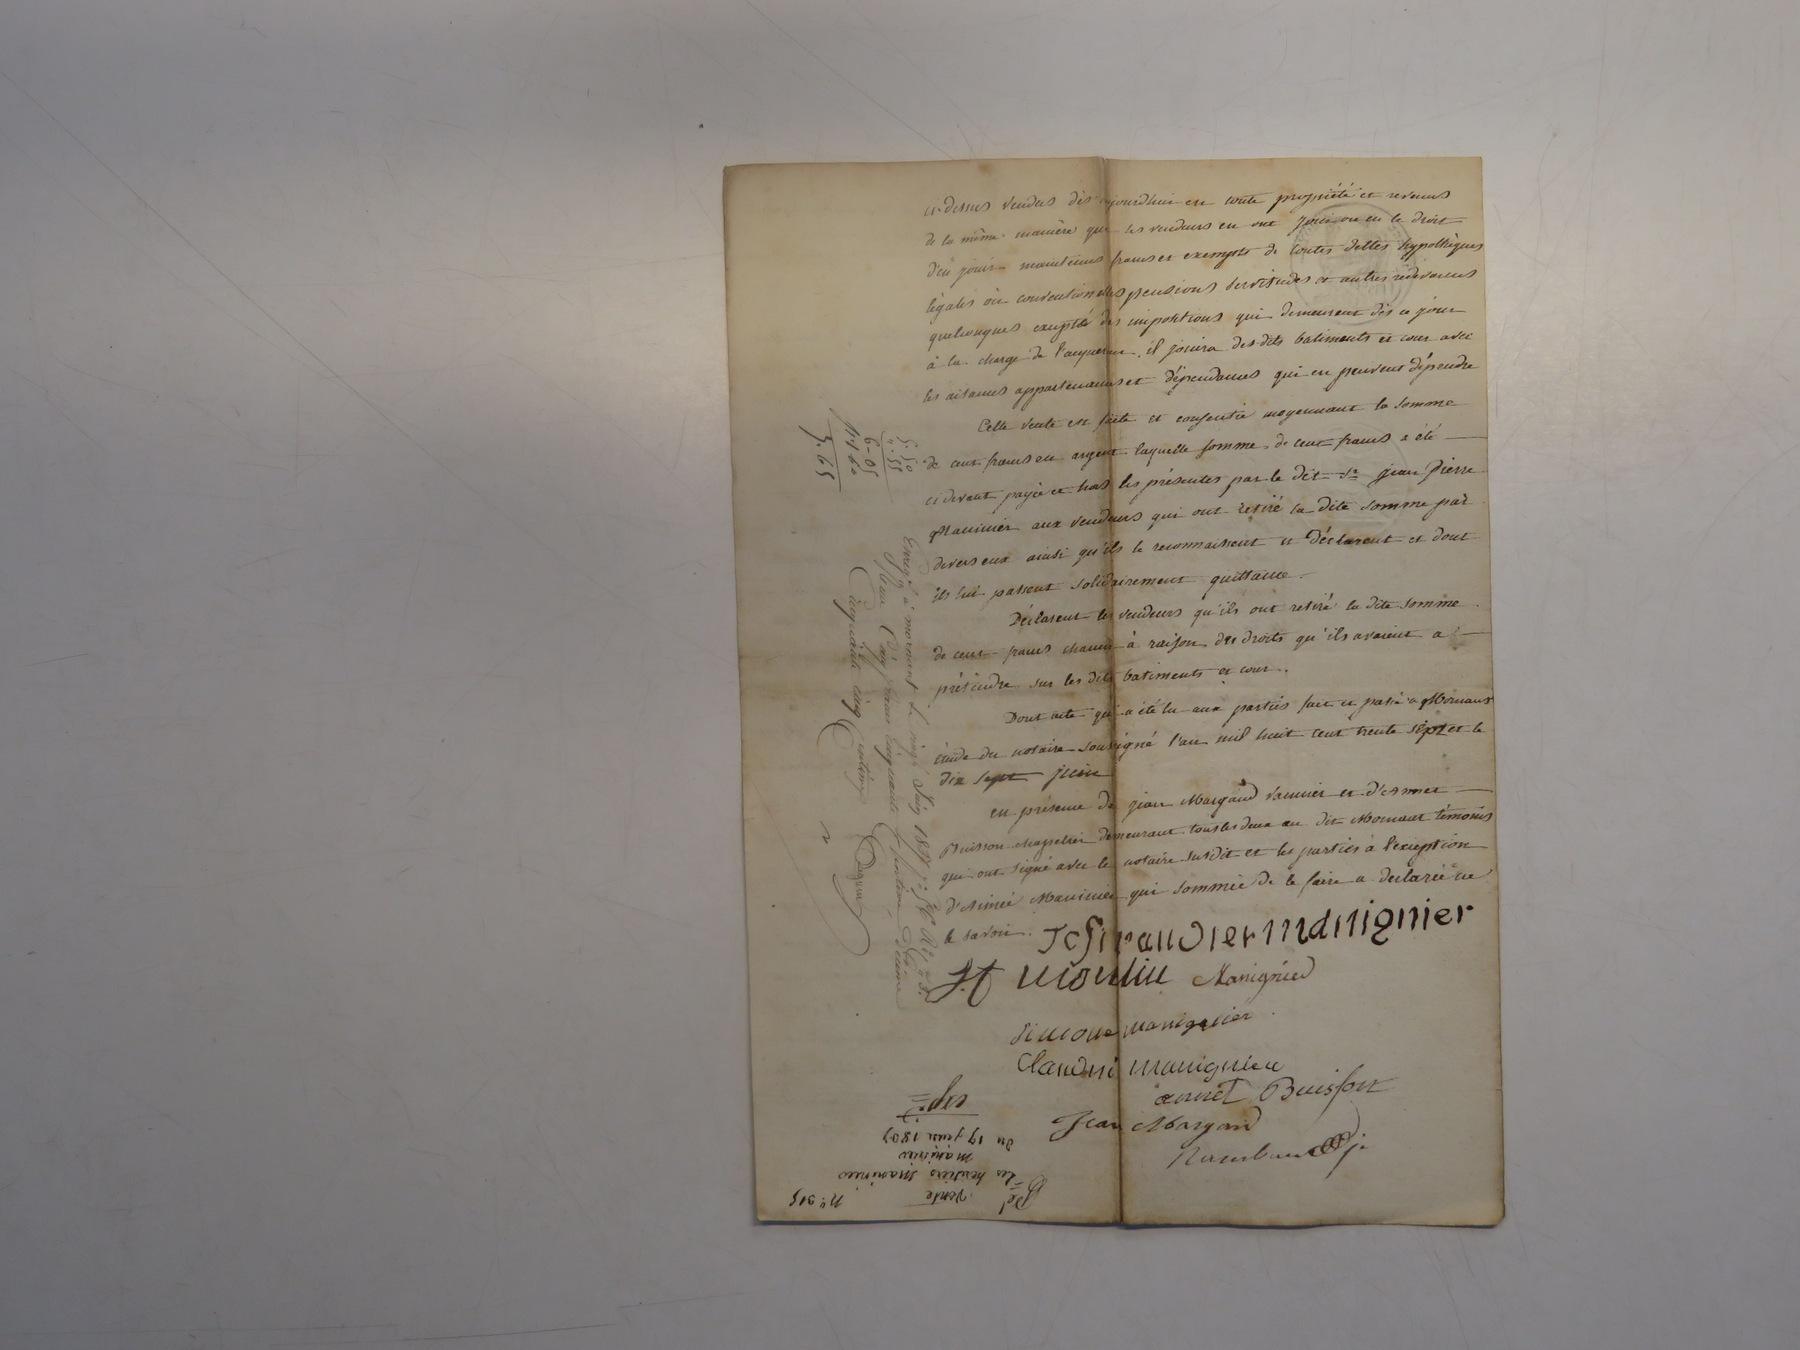 ci dessus vendus dès aujourdhui en toute propriété et revenus
de la même manière que les vendeurs en ont joui ou eu le droit
d'en jouir maintenus francs et exempts de toutes dettes hypothèques
légales ou conventionnelles pensions servitudes et autres redevances
quelconques excepté des impositions qui demeurent dès ce jour
à la charge de l'acquereur. il jouira des dits batiments et cour avec
les aisances appartenances et dépendances qui en peuvent dépendre
Cette vente est faite et consentie moyennant la somme
de cent francs en argent laquelle somme de cent francs a été
ci devant payée et hors les présentes par le dit Sr jean Pierre
Maninier aux vendeurs qui ont retiré la dite somme par
devers eux ainsi qu'ils le reconnaissent et déclarent et dont
ils lui passent solidairement quittance.
Déclarent les vendeurs qu'ils ont retiré la dite somme
de cent francs chacun à raison des droits qu'ils avaient a
prétendre sur les dits batiments et cour.
Dont acte qui a été lu aux parties fait et passé a Mornant
étude du notaire soussigné l'an mil huit cent trente sept et le
dix sept juin
en présence de jean Margand vannier et d'Annet
Buisson chapelier demeurant tous les deux au dit Mornant témoins
qui ont signé avec le notaire susdit et les parties à l'exception
d'Aimée Maninier qui sommée de le faire a déclarée ne
le savoir.
manignier
moulin Manignier
Simone manignier
Claudine manignier
annet Buisson
Jean Margand
5. 50
55
6-05
1. 60
7. 65
Enregé à mornant le vingt Juin 1837
Reçu Cinq francs Cinquante Centimes Décime
Cinquante cinq Centimes
N° 315
Vente
les heritiers maninier
maninier
du 17 juin 1837